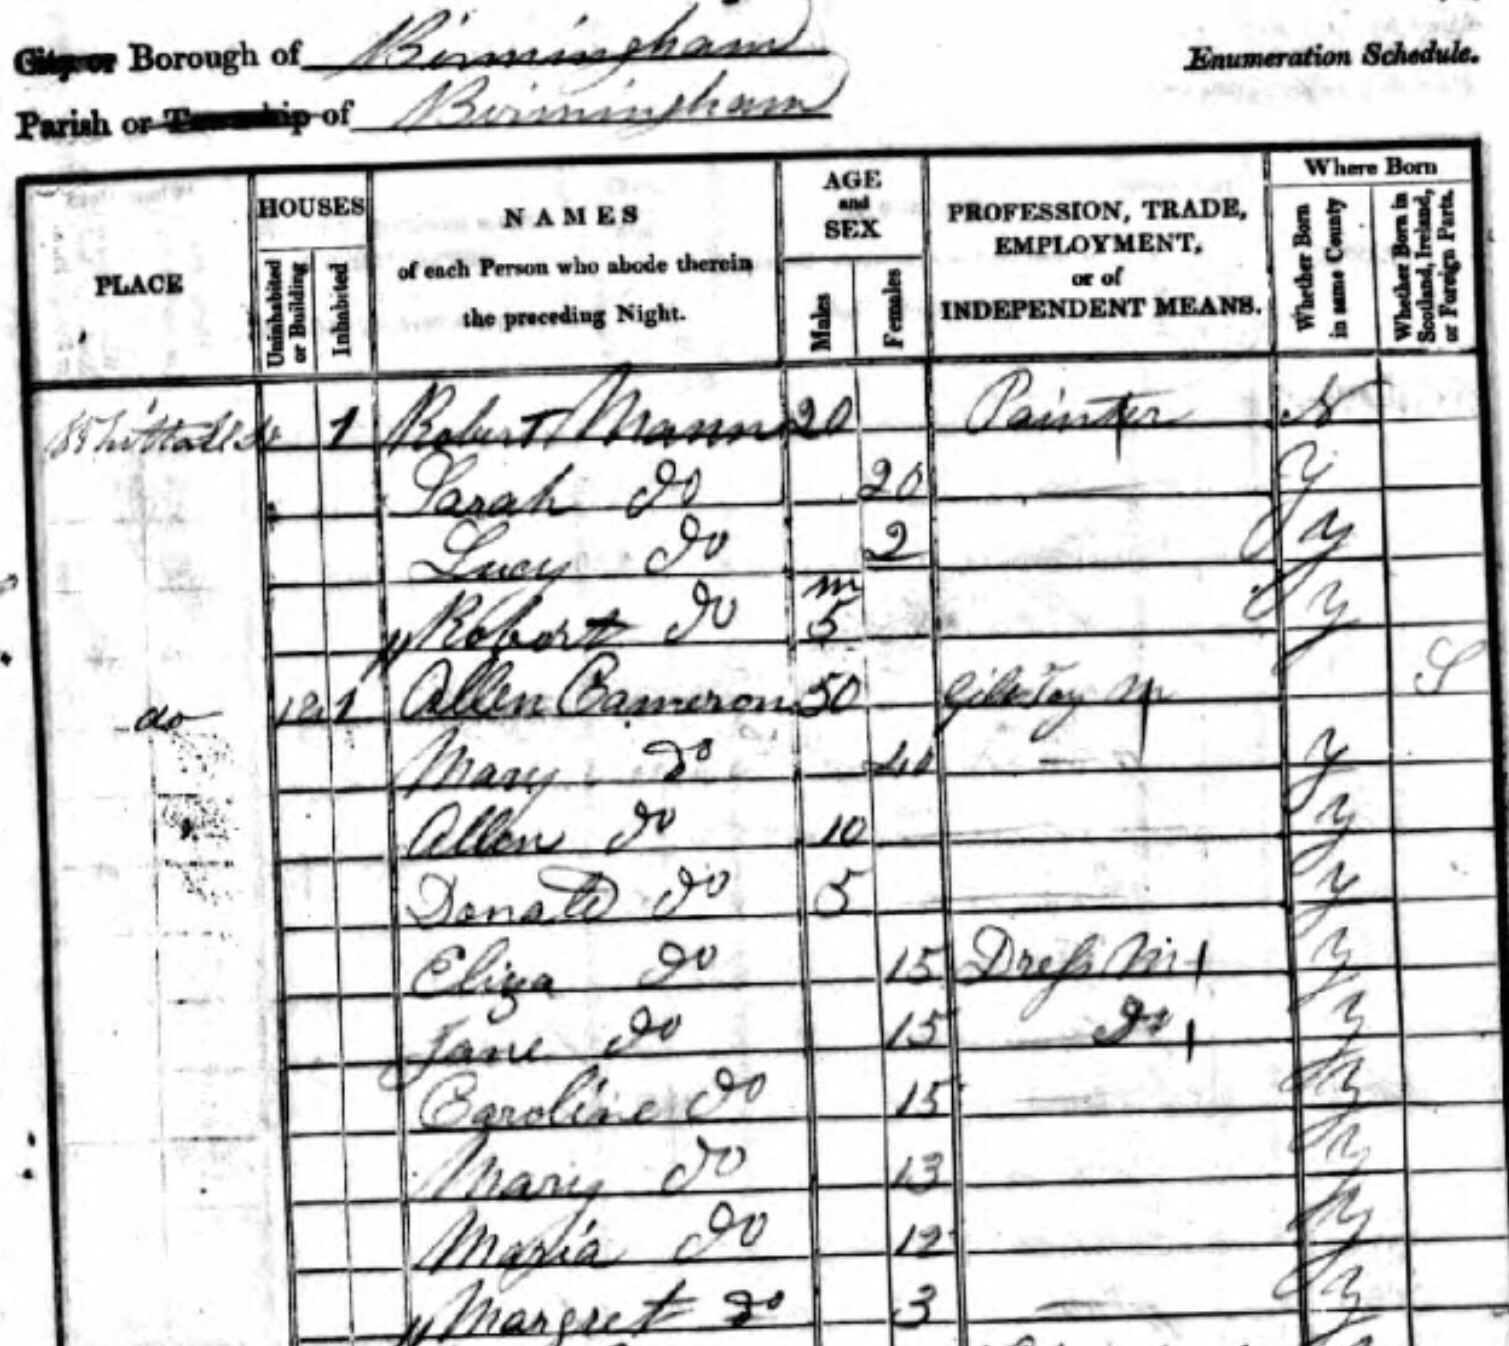 City or Borough of Birmingham
Enumeration Schedule.
Parish or Township of Birmingham
PLACE
HOUSES
Uninhabited or Building
Inhabited
NAMES
of each Person who abode therein
the preceding Night.
AGE
and
SEX
Males
Females
PROFESSION, TRADE,
EMPLOYMENT,
or of
INDEPENDENT MEANS.
Where Born
Whether Born in same County
Whether Born in Scotland, Ireland, or Foreign Parts.
1 Robert Mann 20 Painter N
Sarah do 20 y
Lucy do 2 y
m
Robert do 5 y
do 1 Allen Cameron 50 Toy M S
Mary do 40 y
Allen do 10 y
Donald do 5 y
Eliza do 15 Dress M y
Jane do 15 do y
Caroline do 15 y
Mary do 13 y
Maria do 12 y
Margret do 3 y